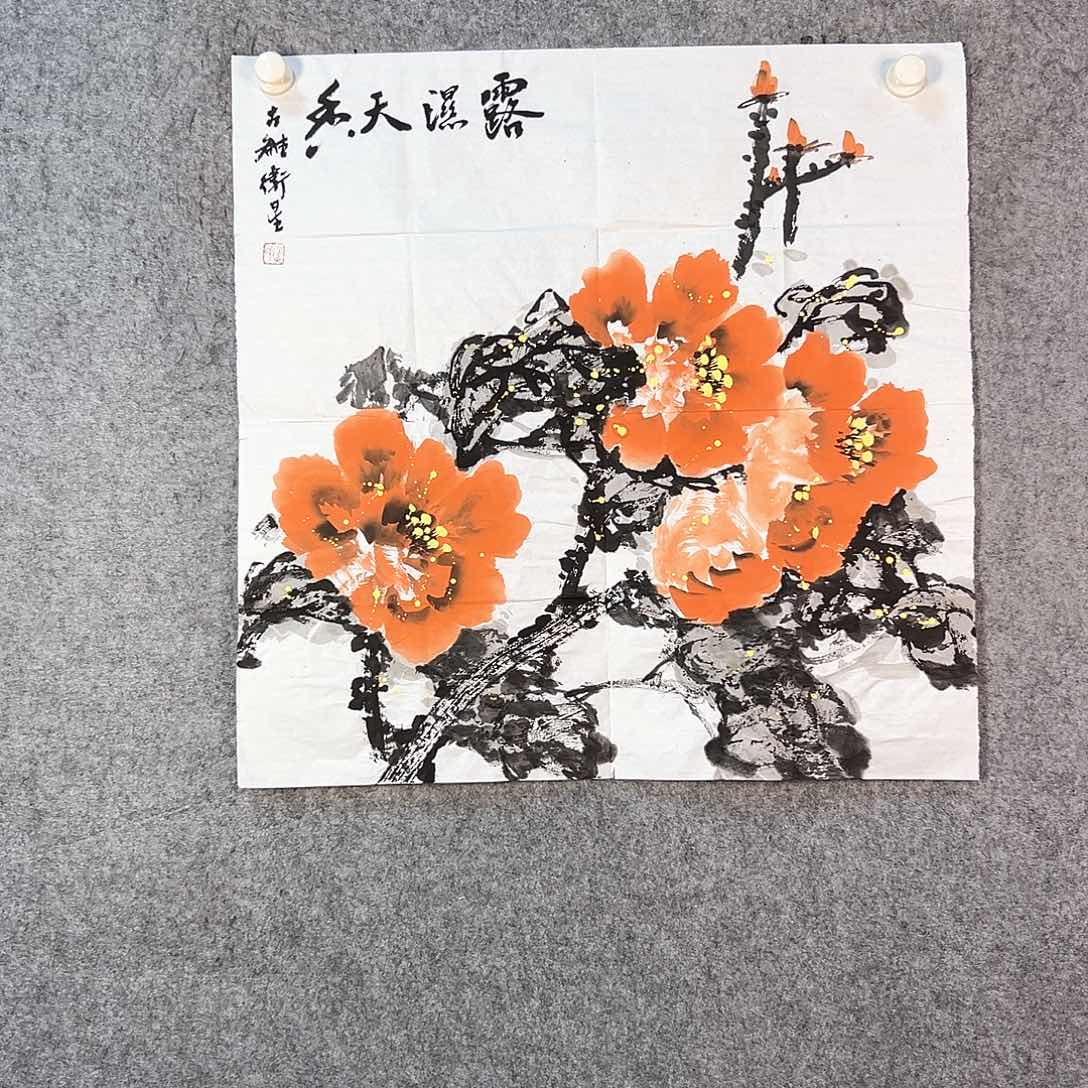 露濕天香
古雒衛星